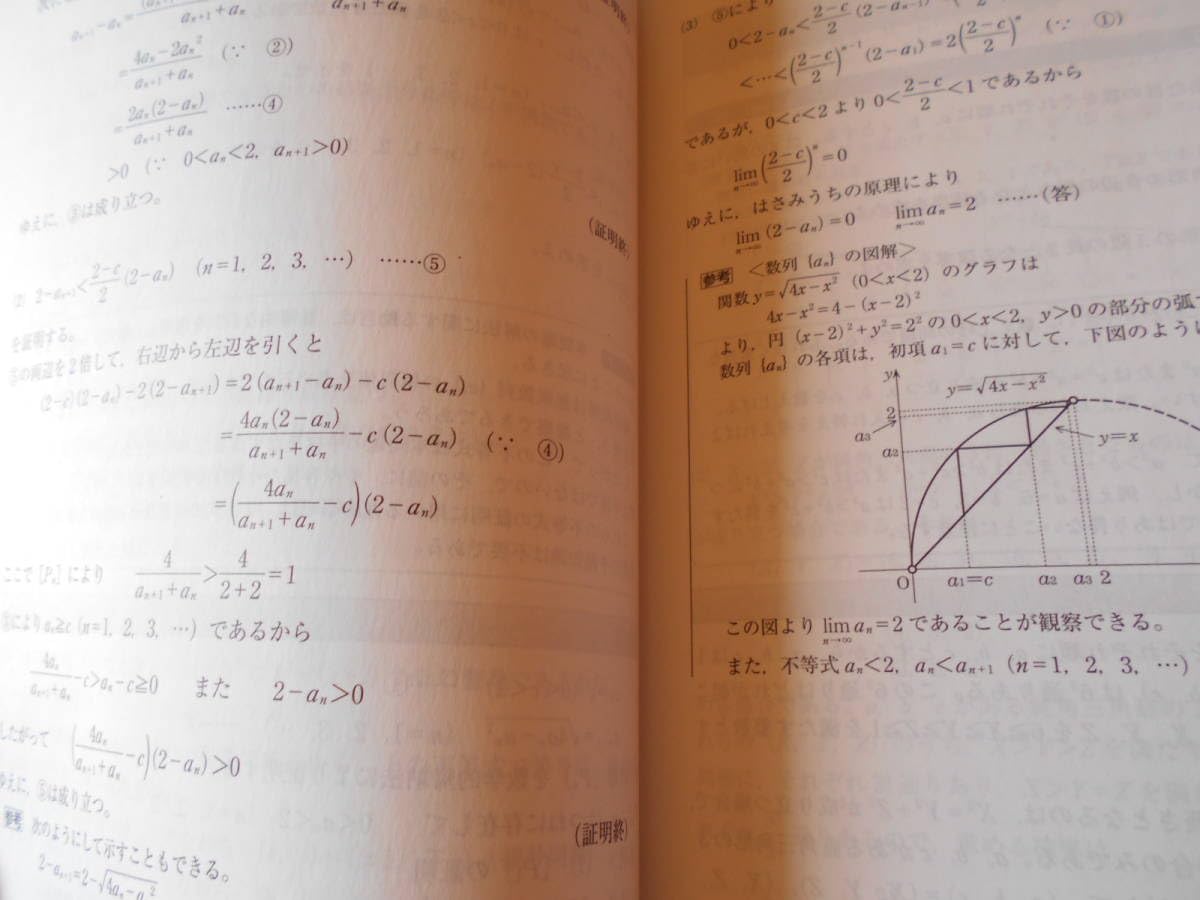 a_{n+1}-a_n=
=\frac{4a_n-2a_n^2}{a_{n+1}+a_n} (∵ ②)
=\frac{2a_n(2-a_n)}{a_{n+1}+a_n} ……④
>0 (∵ 0<a_n<2, a_{n+1}>0)
ゆえに, ③は成り立つ。
(証明終)
(2) 2-a_{n+1}<\frac{2-c}{2}(2-a_n) (n=1, 2, 3, …) ……⑤
を証明する。
⑤の両辺を2倍して, 右辺から左辺を引くと
(2-c)(2-a_n)-2(2-a_{n+1})=2(a_{n+1}-a_n)-c(2-a_n)
=\frac{4a_n(2-a_n)}{a_{n+1}+a_n}-c(2-a_n) (∵ ④)
=\left(\frac{4a_n}{a_{n+1}+a_n}-c\right)(2-a_n)
ここで [P_n] により \frac{4}{a_{n+1}+a_n}>\frac{4}{2+2}=1
③により a_n≧c (n=1, 2, 3, …) であるから
\frac{4a_n}{a_{n+1}+a_n}-c>a_n-c≧0 また 2-a_n>0
したがって \left(\frac{4a_n}{a_{n+1}+a_n}-c\right)(2-a_n)>0
ゆえに, ⑤は成り立つ。
(証明終)
参考 次のようにして示すこともできる。
2-a_{n+1}=2-\sqrt{4a_n-a_n^2}
(3) ⑤により
0<2-a_n<\frac{2-c}{2}(2-a_{n-1})<
<…<\left(\frac{2-c}{2}\right)^{n-1}(2-a_1)=2\left(\frac{2-c}{2}\right)^n (∵ ①)
であるが, 0<c<2 より 0<\frac{2-c}{2}<1 であるから
\lim_{n→∞}\left(\frac{2-c}{2}\right)^n=0
ゆえに, はさみうちの原理により
\lim_{n→∞}(2-a_n)=0 \lim_{n→∞}a_n=2 ……(答)
参考 <数列 {a_n} の図解>
関数 y=\sqrt{4x-x^2} (0<x<2) のグラフは
4x-x^2=4-(x-2)^2
より, 円 (x-2)^2+y^2=2^2 の 0<x<2, y>0 の部分の弧
数列 {a_n} の各項は, 初項 a_1=c に対して, 下図のように
y
y=\sqrt{4x-x^2}
2
a_3
a_2
y=x
O a_1=c a_2 a_3 2
この図より \lim_{n→∞}a_n=2 であることが観察できる。
また, 不等式 a_n<2, a_n<a_{n+1} (n=1, 2, 3, …)